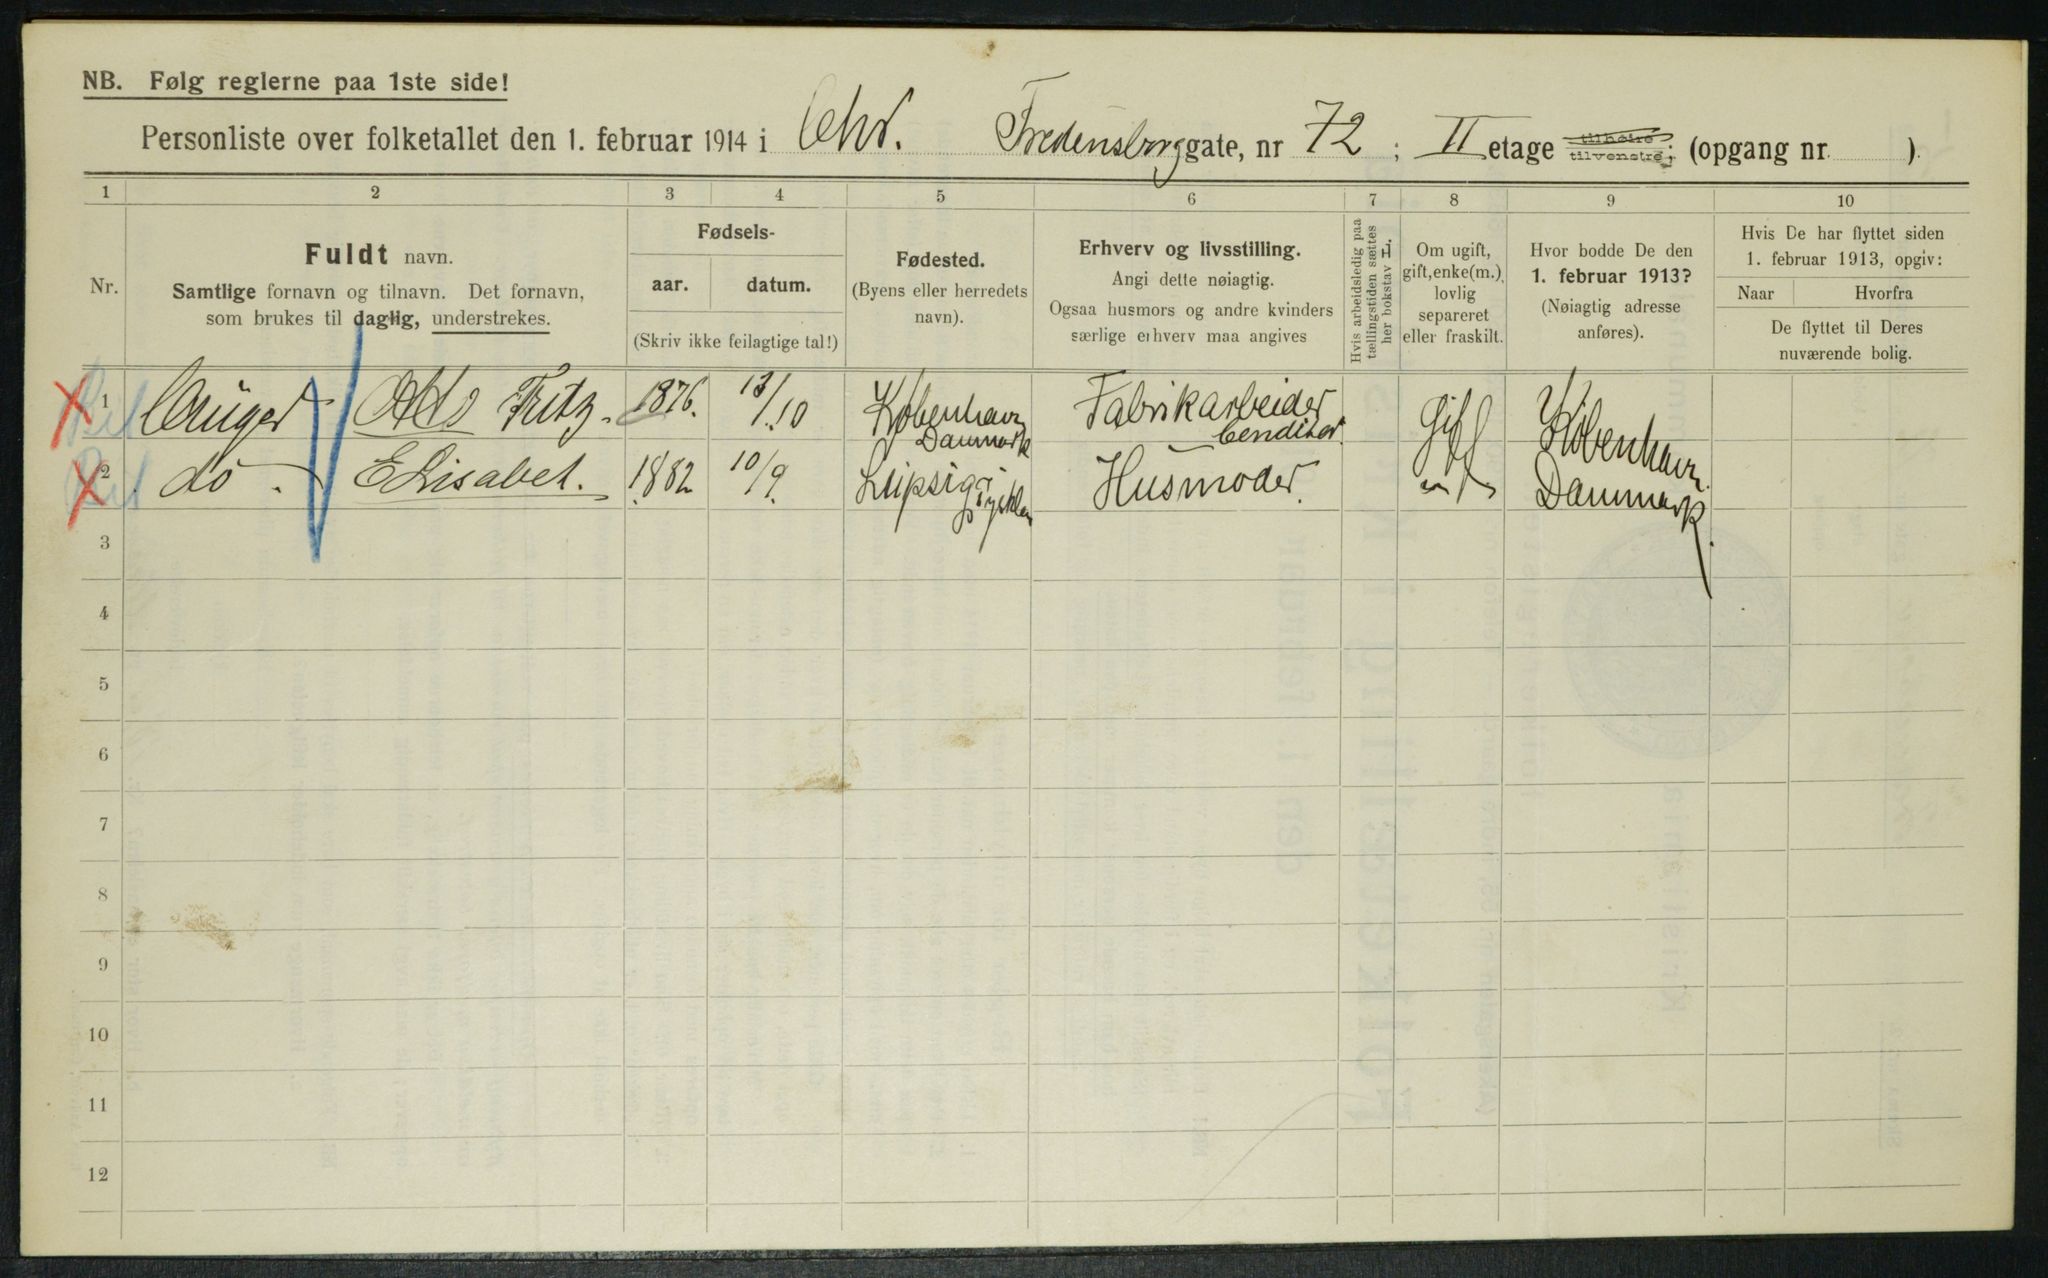 NB. Følg reglerne paa 1ste side!
Personliste over folketallet den 1. februar 1914 i Chr. Fredensborggate, nr 72 ; II etage tilhøire tilvenstre; (opgang nr. ).
1 2 3 4 5 6 7 8 9 10
Nr.
Fuldt navn.
Samtlige fornavn og tilnavn. Det fornavn,
som brukes til daglig, understrekes.
Fødsels-
aar. datum.
(Skriv ikke feilagtige tal!)
Fødested.
(Byens eller herredets
navn).
Erhverv og livsstilling.
Angi dette nøiagtig.
Ogsaa husmors og andre kvinders
særlige erhverv maa angives
Hvis arbeidsledig paa
tællingstiden sættes
her bokstav l.
Om ugift,
gift, enke(m.),
lovlig
separeret
eller fraskilt.
Hvor bodde De den
1. februar 1913?
(Nøiagtig adresse
anføres).
Hvis De har flyttet siden
1. februar 1913, opgiv:
Naar Hvorfra
De flyttet til Deres
nuværende bolig.
1 Crüger Otto Fritz. 1876. 13/10 Kobenhavn Danmark Fabrikarbeider Conditor. Gift Kobenhavn
2 do. Elisabet. 1882 10/9. Leipsig Tysklan Husmoder. Danmark.
3
4
5
6
7
8
9
10
11
12